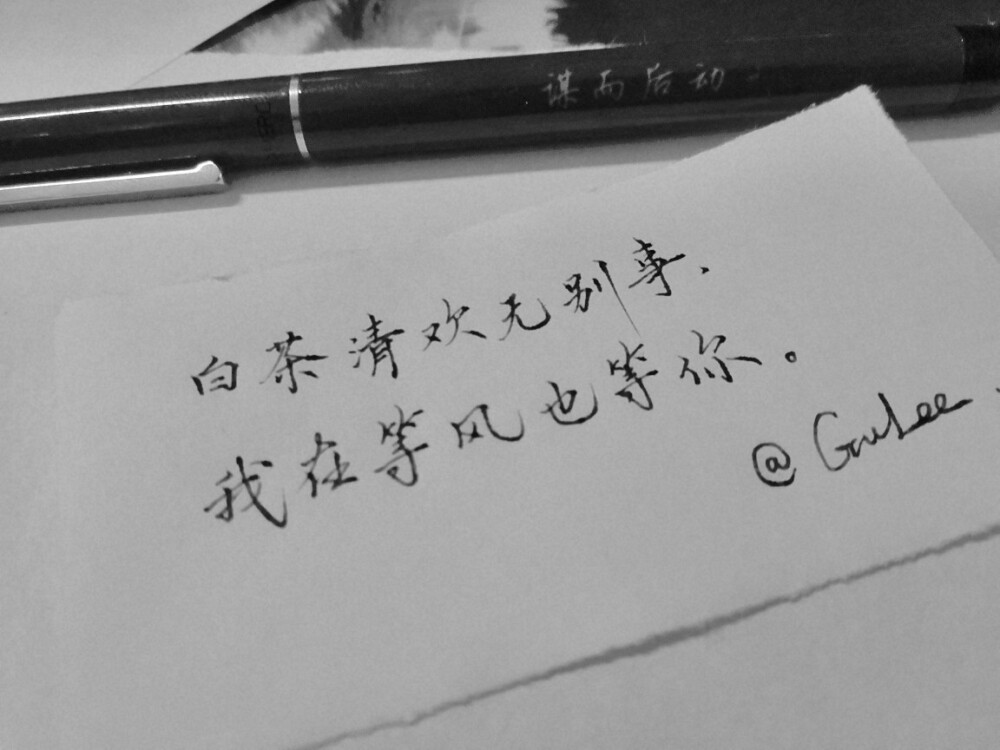 谋而后动
白茶清欢无别事、
我在等风也等你。
@GruLee